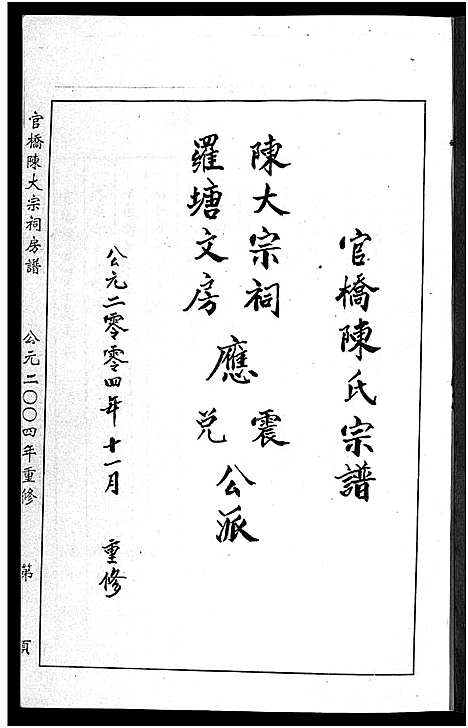 官橋陳氏宗譜
陳大宗祠 震
應 公派
羅塘文房 兑
公元二零零四年十一月 重修
官橋陳大宗祠房譜 公元二〇〇四年重修 第 頁